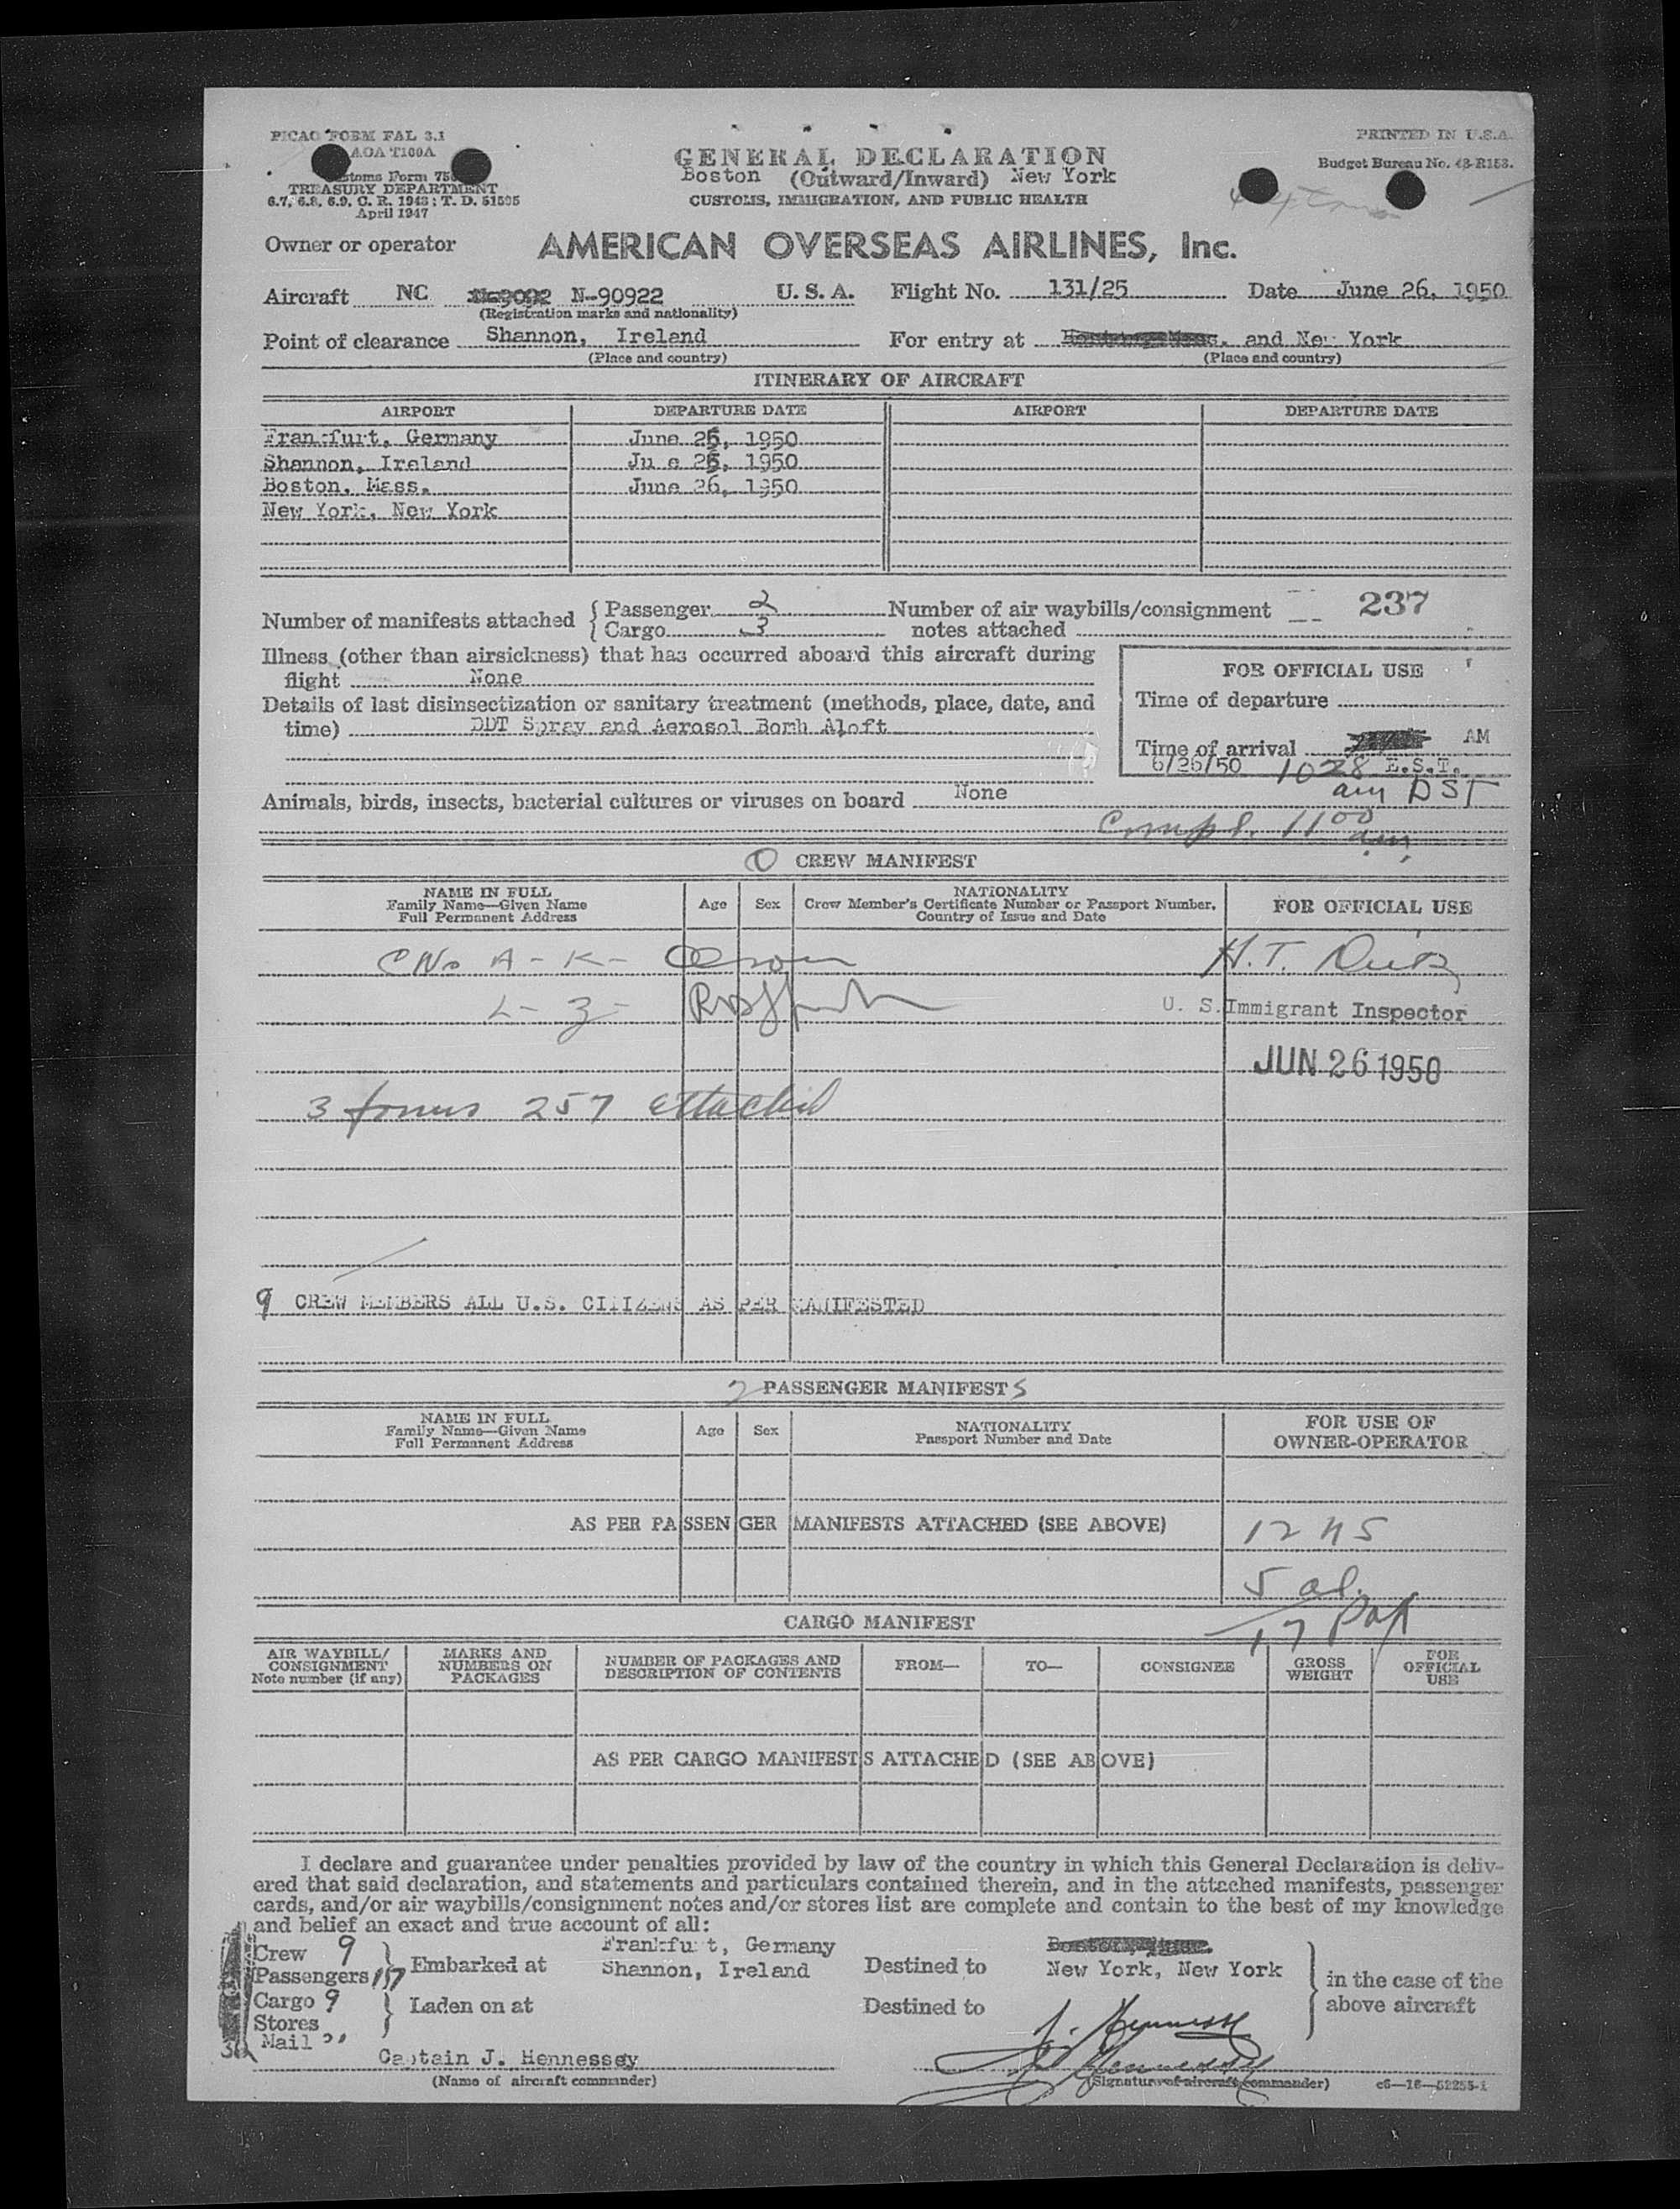 PICAO FORM FAL 3.1
AOA T100A
PRINTED IN U.S.A.
GENERAL DECLARATION
Budget Bureau No. 48-R153.
Boston (Outward/Inward) New York
TREASURY DEPARTMENT
6.7, 6.8, 6.9, C. R. 1943; T. D. 51595
April 1947
CUSTOMS, IMMIGRATION, AND PUBLIC HEALTH
Owner or operator AMERICAN OVERSEAS AIRLINES, Inc.
Aircraft NC N-90922 U. S. A. Flight No. 131/25 Date June 26, 1950
(Registration marks and nationality)
Point of clearance Shannon, Ireland For entry at and New York
(Place and country) (Place and country)
ITINERARY OF AIRCRAFT
AIRPORT DEPARTURE DATE AIRPORT DEPARTURE DATE
Frankfurt, Germany June 25, 1950
Shannon, Ireland Ju e 26, 1950
Boston, Mass. June 26, 1950
New York, New York
Number of manifests attached { Passenger 2 Number of air waybills/consignment 237
{ Cargo 3 notes attached
Illness (other than airsickness) that has occurred aboard this aircraft during
flight None
FOR OFFICIAL USE
Details of last disinsectization or sanitary treatment (methods, place, date, and
time) DDT Spray and Aerosol Bomb Aloft
Time of departure
Time of arrival AM
6/26/50 1028 E.S.T.
am DST
Animals, birds, insects, bacterial cultures or viruses on board None
Compl. 11 00 am.
CREW MANIFEST
NAME IN FULL
Family Name—Given Name
Full Permanent Address
Age Sex
NATIONALITY
Crew Member's Certificate Number or Passport Number,
Country of Issue and Date
FOR OFFICIAL USE
A - K -
H.T.
L - Z -
U. S. Immigrant Inspector
JUN 26 1950
3 forms 257 attached
9 CREW MEMBERS ALL U.S. CITIZENS AS PER MANIFESTED
2 PASSENGER MANIFESTS
NAME IN FULL
Family Name—Given Name
Full Permanent Address
Age Sex
NATIONALITY
Passport Number and Date
FOR USE OF
OWNER-OPERATOR
AS PER PASSENGER MANIFESTS ATTACHED (SEE ABOVE)
12 US
5 al.
17 pax
CARGO MANIFEST
AIR WAYBILL/
CONSIGNMENT
Note number (if any)
MARKS AND
NUMBERS ON
PACKAGES
NUMBER OF PACKAGES AND
DESCRIPTION OF CONTENTS
FROM— TO— CONSIGNEE
GROSS
WEIGHT
FOR
OFFICIAL
USE
AS PER CARGO MANIFESTS ATTACHED (SEE ABOVE)
I declare and guarantee under penalties provided by law of the country in which this General Declaration is deliv-
ered that said declaration, and statements and particulars contained therein, and in the attached manifests, passenger
cards, and/or air waybills/consignment notes and/or stores list are complete and contain to the best of my knowledge
and belief an exact and true account of all:
Crew 9 Frankfu t, Germany
Passengers 17 } Embarked at Shannon, Ireland Destined to New York, New York } in the case of the
Cargo 9 } Laden on at Destined to above aircraft
Stores
Mail
J. Hennessy
Captain J. Hennessey
(Name of aircraft commander) (Signature of aircraft commander) c6—16—52255-1